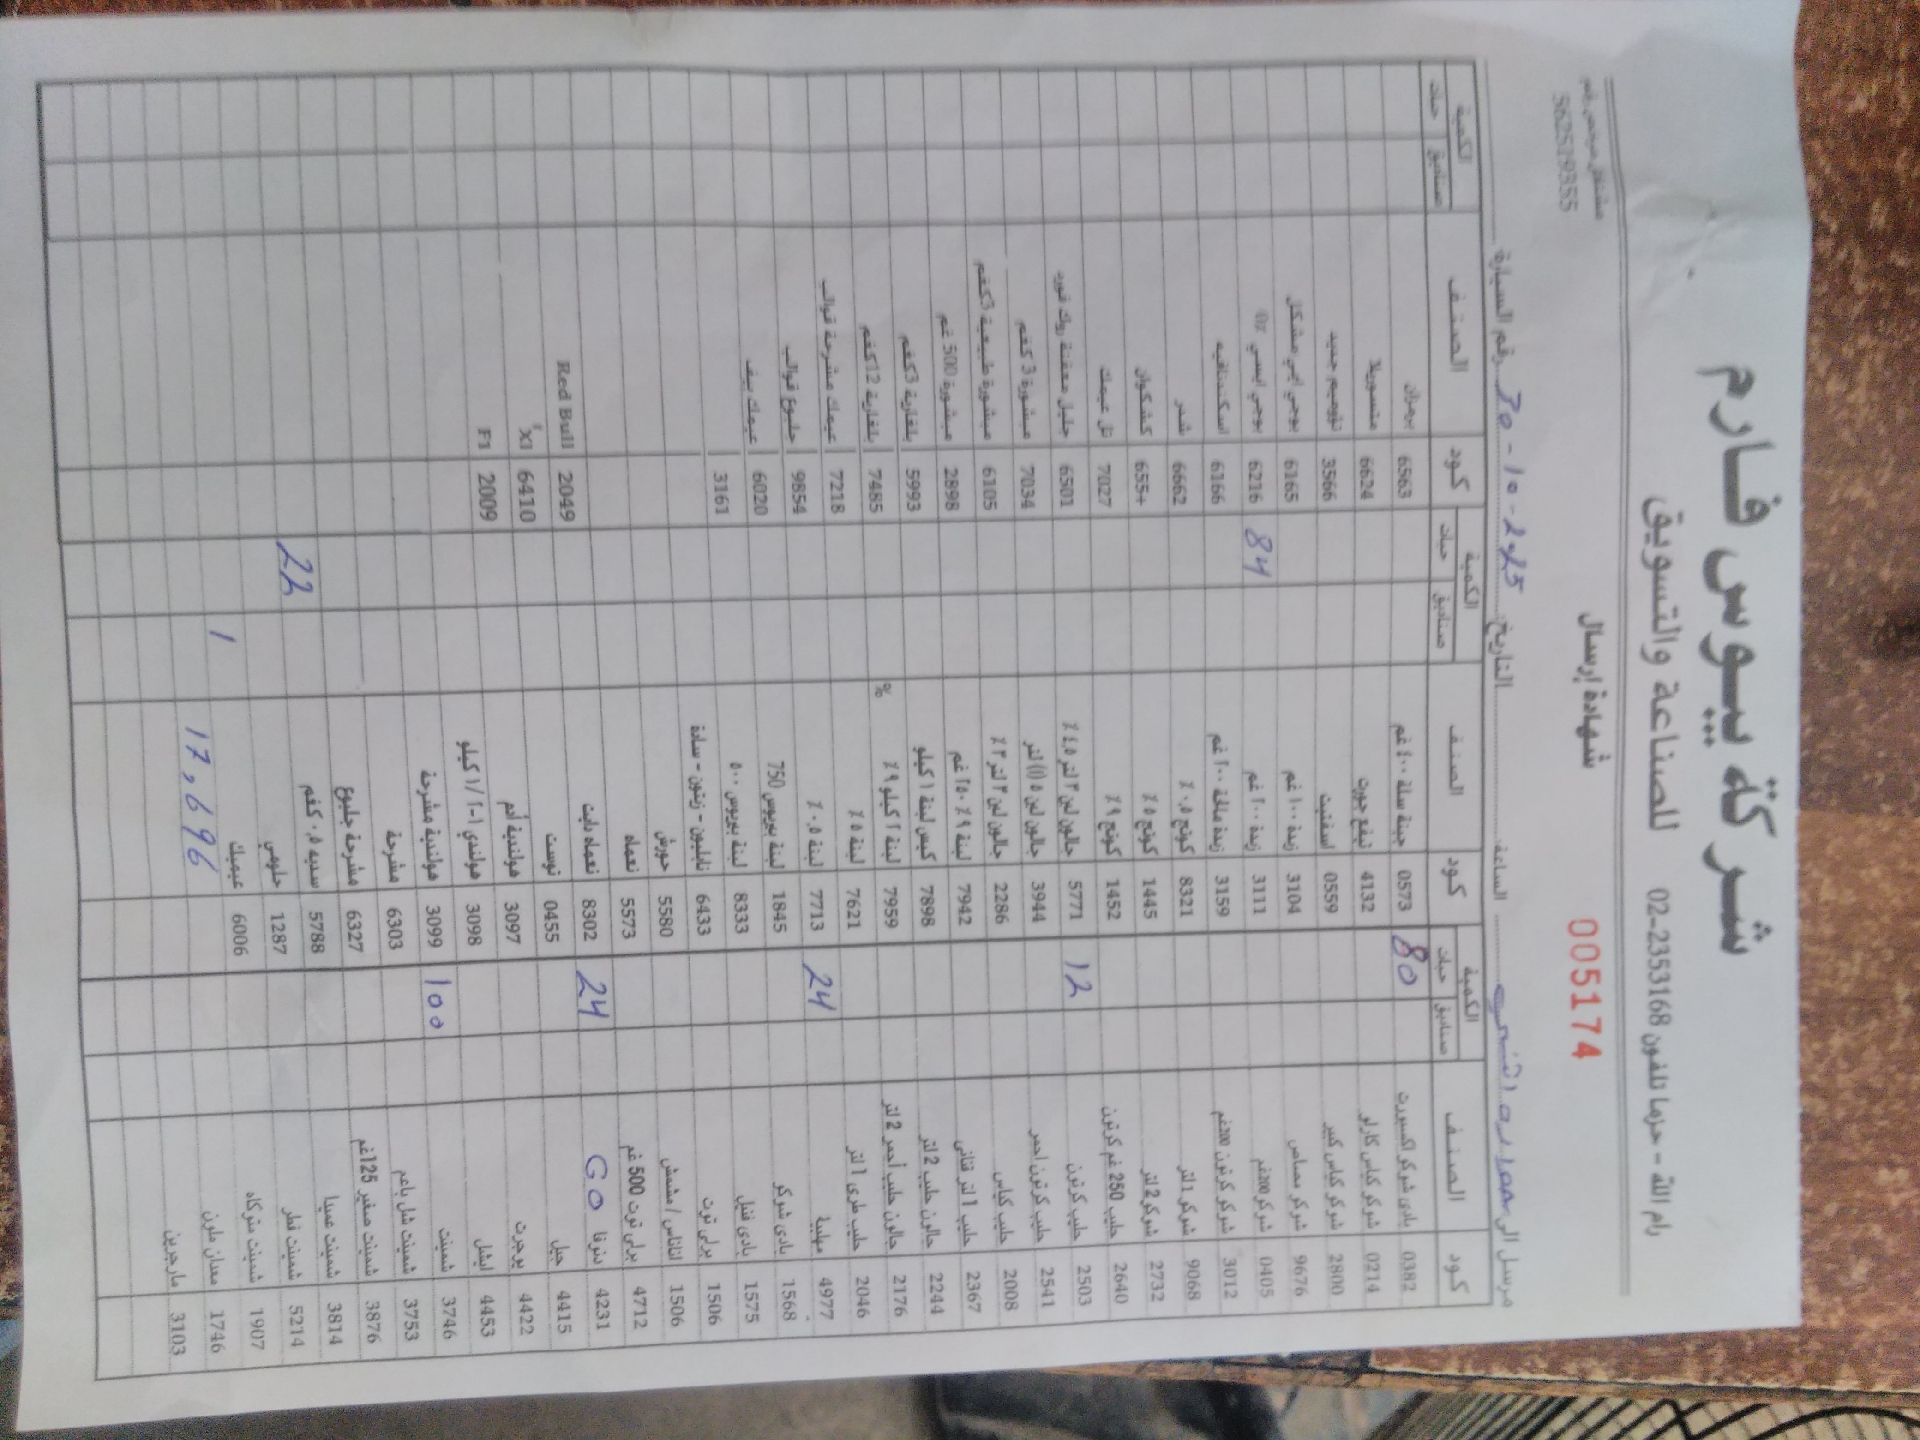 شركة بيوس فارم
للصناعة والتسويق
رام الله - حزما تلفون 02-2353168
مشتغل مرخص رقم
562519355
شهادة إرسال
005174
مرسل الى الساعة التاريخ 30-10-2025 رقم السيارة
كود الصنف الكمية كود الصنف الكمية كود الصنف الكمية
صناديق حبات صناديق حبات صناديق حبات
0382 بادي شوكو اكسبورت 80 0573 جبنة سلة ٤٠٠ غم 6563 برمزان
0214 شوكو كياس كارلو 4132 نيفع جورت 6624 متسوريلا
2800 شوكو كياس كبير 0559 اسفتيت 3566 تزوميم جديد
9676 شوكو مصاص 3104 زبدة ١٠٠ غم 6165 بوجي ايبي مشكل
0405 شوكو 200غم 3111 زبدة ٢٠٠ غم 84 6216 بوجي ايسي Oz
3012 شوكو كرتون 200غم 3159 زبدة ملحة ٢٠٠ غم 6166 اسكندنافيه
9068 شوكو 1 لتر 8321 كوتج ٠,٥٪ 6662 شدر
2732 شوكو 2 لتر 1445 كوتج ٥٪ 655+ كشكوان
2640 حليب 250 غم كرتون 1452 كوتج ٩٪ 7027 تل عيمك
2503 حليب كرتون 12 5771 جالون لبن ٣ لتر ٤,٥٪ 6501 جليل معفنة روك فورد
2541 حليب كرتون احمر 3944 جالون لبن ٥(١) لتر 7034 مبشورة 3 كغم
2008 حليب كياس 2286 جالون لبن ٣ لتر ٣٪ 6105 مبشورة طبيعية 3كغم
2367 حليب 1 لتر قناني 7942 لبنة ٩٪ ٢٥٠ غم 2898 مبشورة 500 غم
2244 جالون حليب 2 لتر 7898 كيس لبنة ١ كيلو 5993 بلغارية 3كغم
2176 جالون حليب أحمر 2 لتر 7959 لبنة ٢ كيلو ٩٪ % 7485 بلغارية 12كغم
2046 حليب طري 1 لتر 7621 لبنة ٥٪ 7218 عيمك مشرحة قوالب
4977 مهلبية 24 7713 لبنة ٠,٥٪ 9854 جلبوع قوالب
1568 بادي شوكو 1845 لبنة بيريوس 750 6020 عيمك بيف
1575 بادي فنيل 8333 لبنة بيريوس ٥٠٠ 3161
1506 برلي توت 6433 نابليون - زيتون - سادة
1506 اناناس / مشمش 55800 حورش
4712 برلي توت 500 غم 5573 نعماه
4231 دنونا GO 24 8302 نعماه دايت 2049 Red Bull
4415 جيل 0455 توست 6410 X1
4422 يوجرت 3097 هولندية أدم 2009 F1
4453 ايشل 3098 هولندي ٢-١/١ كيلو
3746 شمينت 100 3099 هولندية مشرحة
3753 شمينت شل باعم 6303 مشرحة
3876 شمينت صغير 125غم 6327 مشرحة جلبوع
3814 شمينت عميدا 5788 سدبه ٠,٥ كغم 22
5214 شمينت فطر 1287 حلومي
1907 شمينت متوكاه 6006 عيميك 1
1746 معدان ملون 17,696
3103 مارجرين